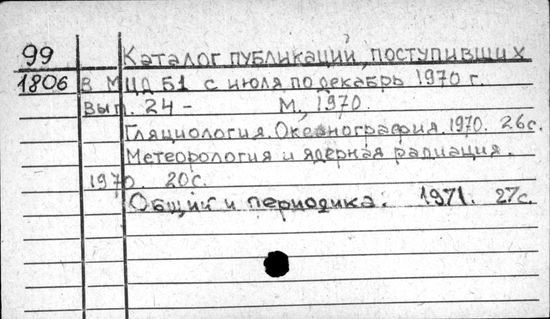 99 Каталог публикаций, поступивших
1806 в МЦД Б1 с июля по декабрь 1970 г.
Вып. 24- М, 1970.
Гляциология. Океанография. 1970. 26с.
Метеорология и ядерная радиация.
1970. 20с.
Общий и периодика. 1971. 27с.